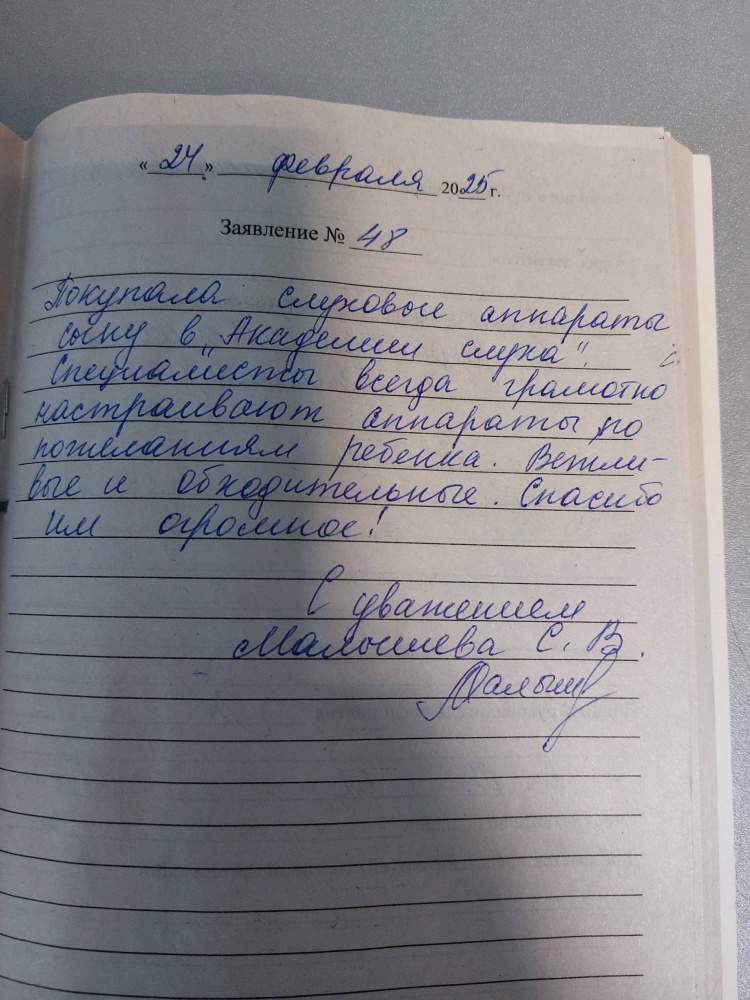 « 24 » февраля 2025 г.
Заявление № 48
Покупала слуховые аппараты
сыну в „Академии слуха".
Специалисты всегда грамотно
настраивают аппараты по
пожеланиям ребенка. Вежли-
вые и обходительные. Спасибо
им огромное!
С уважением
Малышева С. В.